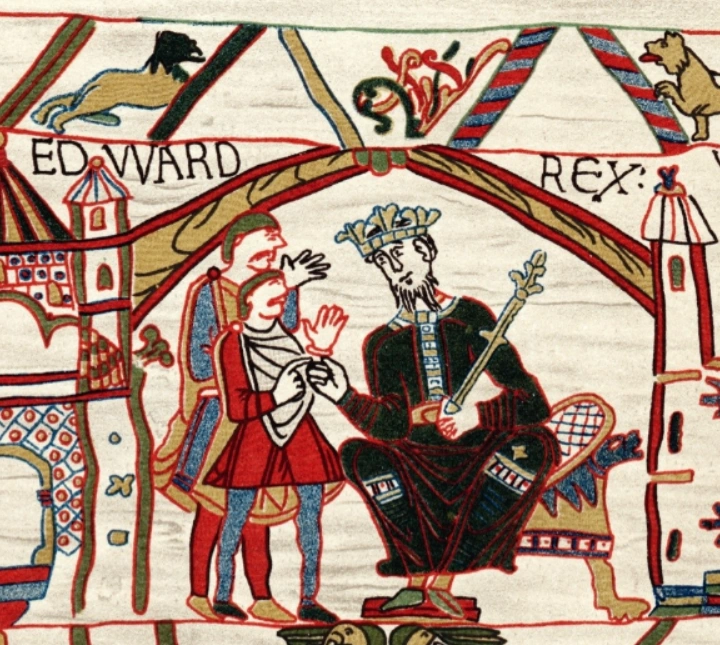 EDVVARD REX: